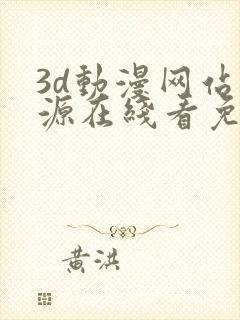 3d動漫网佔
源在綫看免
黄洪